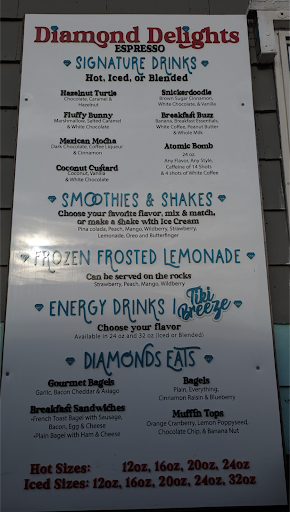 Diamond Delights
ESPRESSO
SIGNATURE DRINKS
Hot, Iced, or Blended
Hazelnut Turtle
Chocolate, Caramel &
Hazelnut
Snickerdoodle
Brown Sugar Cinnamon,
White Chocolate, & Vanilla
Fluffy Bunny
Marshmallow, Salted Caramel
& White Chocolate
Breakfast Buzz
Banana, Breakfast Essentials,
White Coffee, Peanut Butter
& Whole Milk
Mexican Mocha
Dark Chocolate, Coffee Liqueur
& Cinnamon
Atomic Bomb
24 oz
Any Flavor, Any Style,
Caffeine of 14 Shots
& 4 shots of White Coffee
Coconut Custard
Coconut, Vanilla
& White Chocolate
SMOOTHIES & SHAKES
Choose your favorite flavor, mix & match,
or make a shake with Ice Cream
Pina colada, Peach, Mango, Wildberry, Strawberry,
Lemonade, Oreo and Butterfinger
FROZEN FROSTED LEMONADE
Can be served on the rocks
Strawberry, Peach, Mango, Wildberry
ENERGY DRINKS | Tiki Breeze
Choose your flavor
Available in 24 oz and 32 oz (Iced or Blended)
DIAMONDS EATS
Gourmet Bagels
Garlic, Bacon Cheddar & Asiago
Bagels
Plain, Everything,
Cinnamon Raisin & Blueberry
Breakfast Sandwiches
-French Toast Bagel with Sausage,
Bacon, Egg & Cheese
-Plain Bagel with Ham & Cheese
Muffin Tops
Orange Cranberry, Lemon Poppyseed,
Chocolate Chip, & Banana Nut
Hot Sizes: 12oz, 16oz, 20oz, 24oz
Iced Sizes: 12oz, 16oz, 20oz, 24oz, 32oz